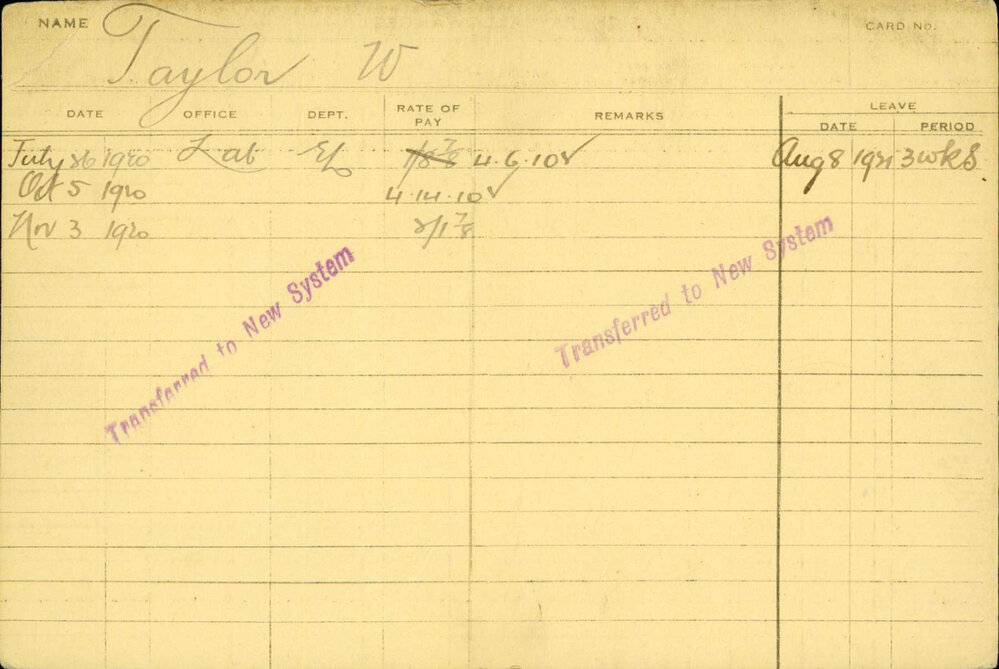 NAME Taylor W CARD NO.
DATE OFFICE DEPT. RATE OF PAY REMARKS LEAVE
DATE PERIOD
July 26 1920 Lab 1/8 7/8 4.6.10 ✓ Aug 8 1921 3 wks.
Oct 5 1920 4.14.10 ✓
Nov 3 1920 2/1 7/8
Transferred to New System
Transferred to New System